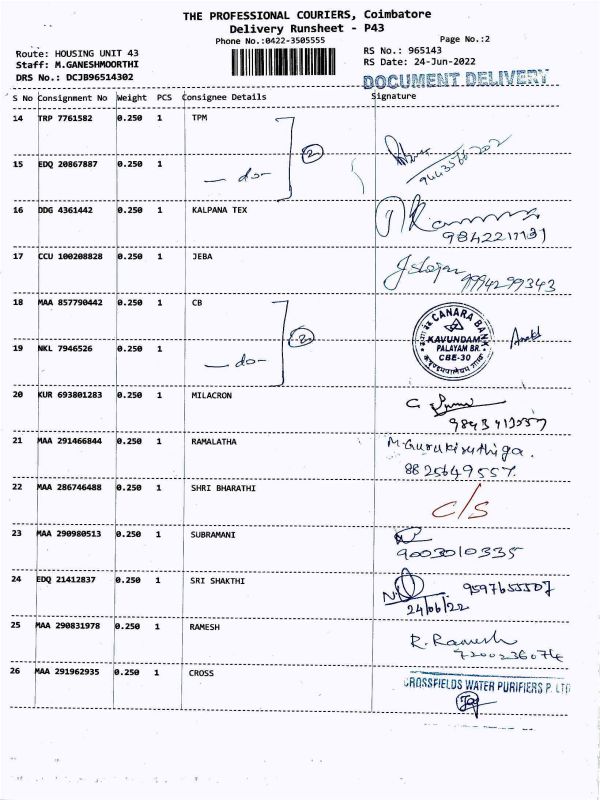 THE PROFESSIONAL COURIERS, Coimbatore
Delivery Runsheet - P43
Phone No.:0422-3505555
Page No.:2
Route: HOUSING UNIT 43
RS No.: 965143
Staff: M.GANESHMOORTHI
RS Date: 24-Jun-2022
DRS No.: DCJB96514302
DOCUMENT DELIVERY
S No Consignment No Weight PCS Consignee Details Signature
14 TRP 7761582 0.250 1 TPM
2
9443566202
15 EDQ 20867887 0.250 1 — do —
16 DDG 4361442 0.250 1 KALPANA TEX
17 CCU 100208828 0.250 1 JEBA
9994299343
18 MAA 857790442 0.250 1 CB
2
CANARA BANK
KAVUNDAM
PALAYAM BR.
CBE-30
19 NKL 7946526 0.250 1 — do —
20 KUR 693801283 0.250 1 MILACRON
21 MAA 291466844 0.250 1 RAMALATHA
M.Gurukiruthiga.
8825649557.
22 MAA 286746488 0.250 1 SHRI BHARATHI
C/S
23 MAA 290980513 0.250 1 SUBRAMANI
9003010335
24 EDQ 21412837 0.250 1 SRI SHAKTHI
9597655507
24/06/22
25 MAA 290831978 0.250 1 RAMESH
R. Ramesh
26 MAA 291962935 0.250 1 CROSS
CROSSFIELDS WATER PURIFIERS P. LTD